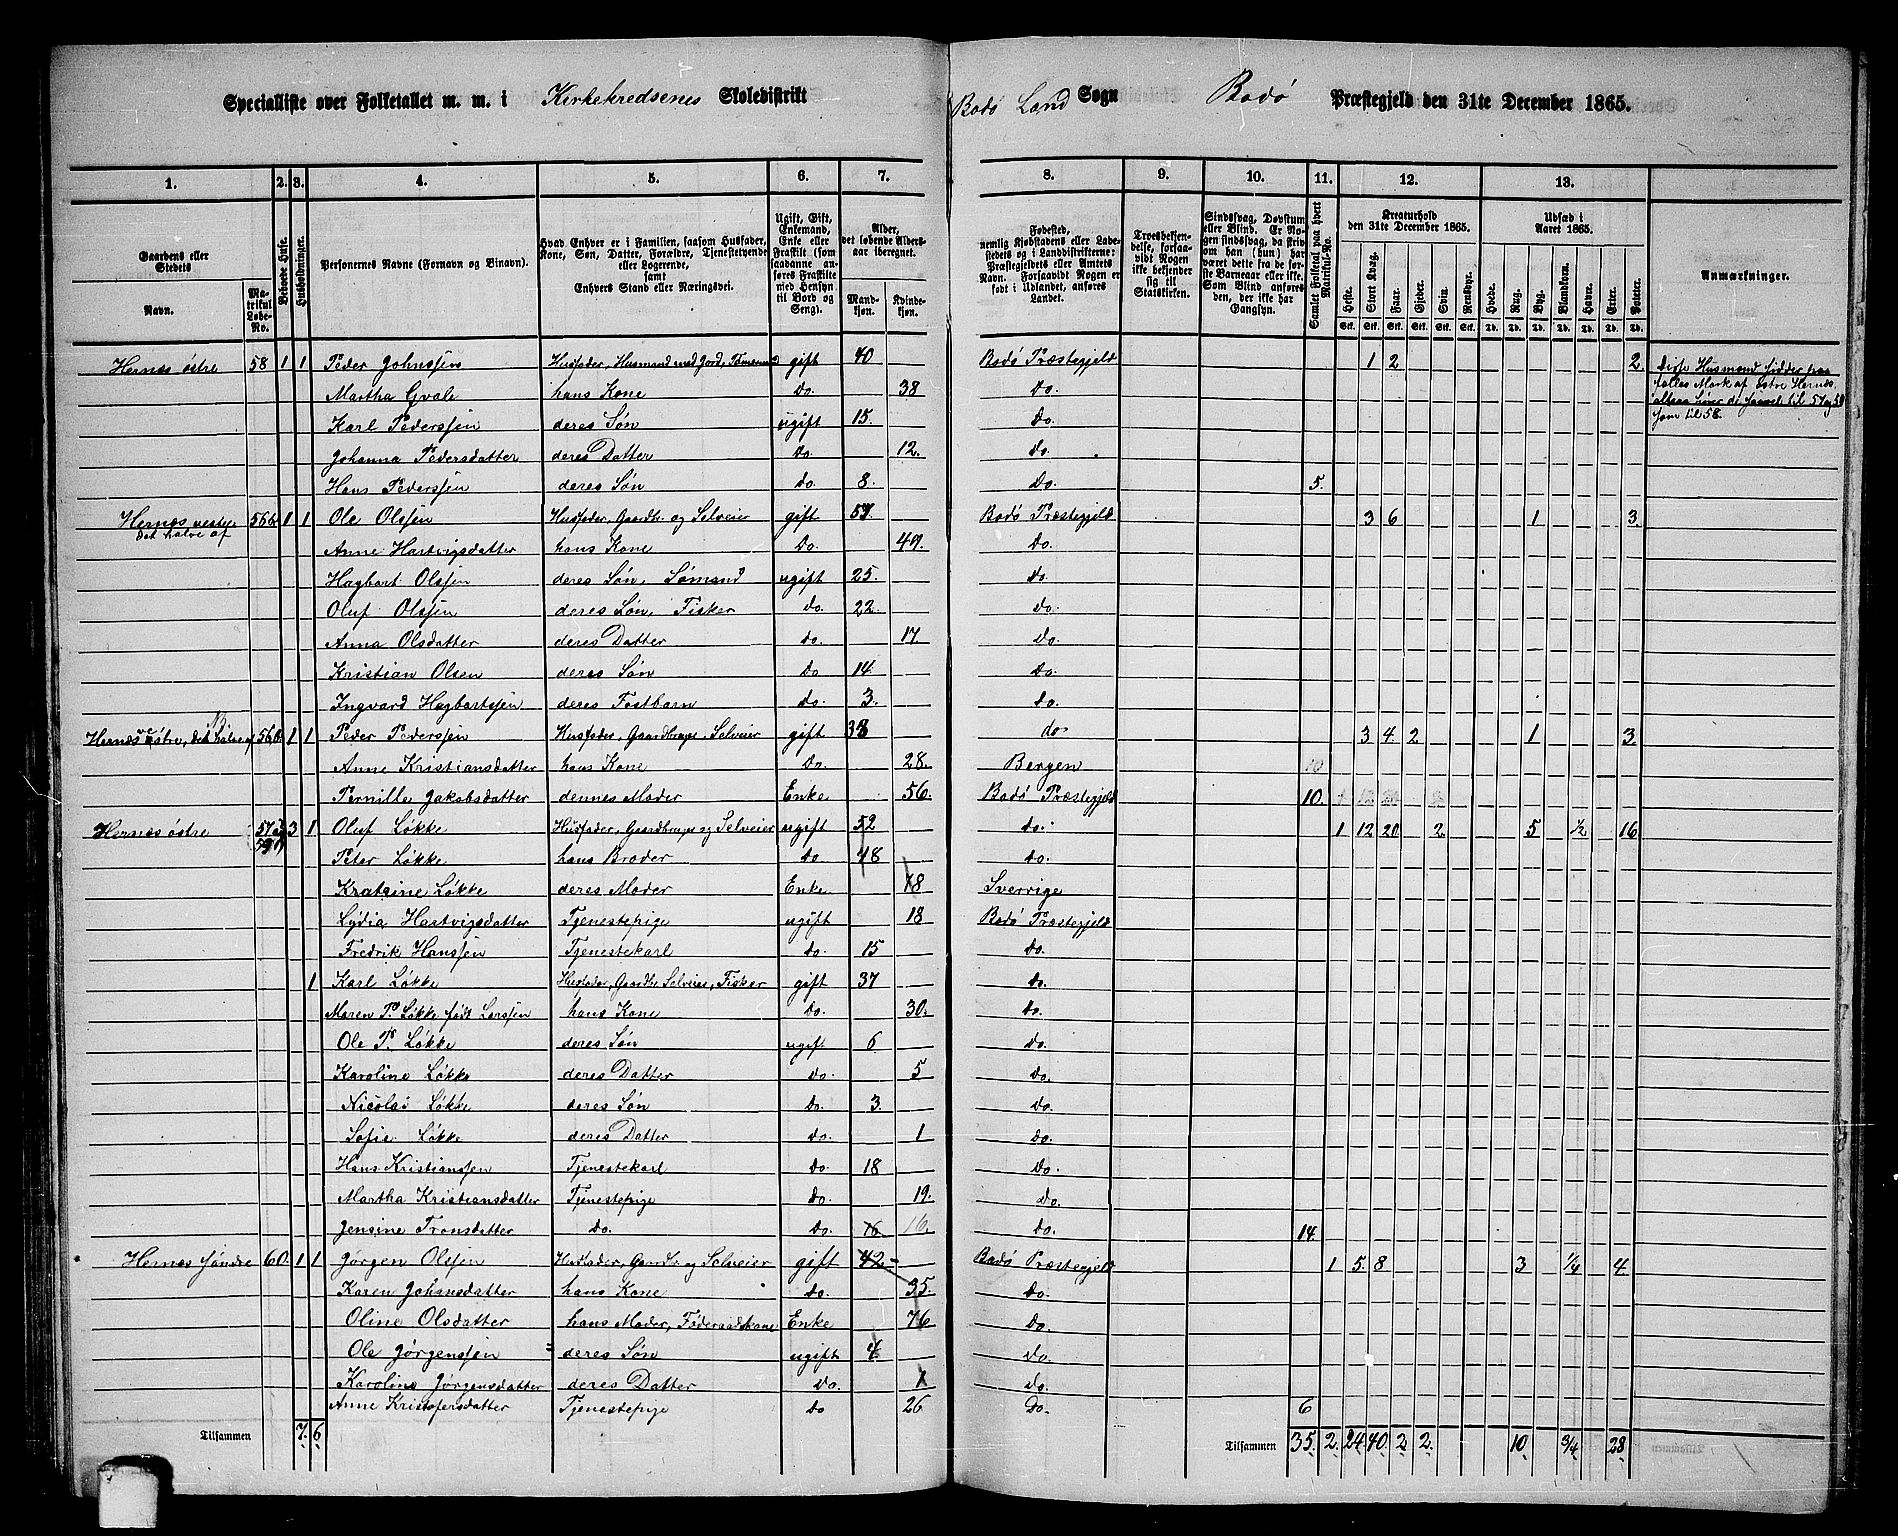 Specialliste over Folketallet m. m. i Kirkekredsenes Skoledistrikt Bodø Land Sogn Bodø Præstegjeld den 31te December 1865.
1. 2. 3. 4. 5. 6. 7. 8. 9. 10. 11. 12. 13.
Gaardens eller Stedets
Navn.
Matrikul Løbe-No.
Beboede Huse.
Husholdninger.
Personernes Navne (Fornavn og Binavn).
Hvad Enhver er i Familien, saasom Husfader, Kone, Søn, Datter, Forældre, Tjenestetyende eller Logerende,
samt
Enhvers Stand eller Næringsvei.
Ugift, Gift, Enkemand, Enke eller Fraskilt (som saadanne anføres Fraskilte med Hensyn til Bord og Seng).
Alder, det løbende Aldersaar iberegnet.
Mandkjøn. Kvindekjøn.
Fødested, nemlig Kjøbstadens eller Ladestedets og i Landdistrikterne: Præstegjeldets eller Amtets Navn. Forsaavidt Nogen er født i Udlandet, anføres Landet.
Troesbekjendelse, forsaavidt Nogen ikke bekjender sig til Statskirken.
Sindssvag, Døvstum eller Blind. Er Nogen sindssvag, da skrives om han (hun) har været dette fra de første Barneaar eller ikke. Som Blind anføres den, der ikke har Gangsyn.
Samlet Folketal paa hvert Matrikul-No.
Kreaturhold den 31te December 1865.
Heste. Stort Kvæg. Faar. Gjeder. Svin. Rensdyr.
Udsæd i Aaret 1865.
Hvede. Rug. Byg. Blandkorn. Havre. Erter. Poteter.
Anmærkninger.
Hernæs østre 58 1 1 Peder Johnssen Husfader, Husmand med Jord, Tømmermand gift 40 Bodø Præstegjeld 1 2 2
Disse Husmænd sidder paa
fælles Mark af østre Hernæs,
altsaa hører de saavel til 57 og 59
som til 58.
Martha Evale hans Kone Do. 38 Do.
Karl Pederssen deres Søn ugift 15. Do.
Johanna Pedersdatter deres Datter Do. 12. do.
Hans Pederssen deres Søn do. 8. Do. 5.
Hernæs vestre det halve af 56 1 1 Ole Olssen Husfader, Gaardbr. og Selveier gift 57 Bodø Præstegjeld 3 6 1 3.
Anne Hartvigsdatter hans Kone Do. 49. Do.
Hagbart Olssen deres Søn, Sømand ugift 25. do.
Oluf Olssen deres Søn, Fisker do. 22. do.
Anna Olsdatter deres Datter do. 17 do.
Kristian Olsen deres Søn Do 14. do.
Ingvard Hagbartssen deres Fostbarn do. 3. do.
Hernæs østre, det halve af 56 1 1 Peder Pederssen Husfader, Gaardbruger, Selveier gift 33 do. 3 4. 2 1 3.
Anne Kristiansdatter hans Kone Do. 28. Bergen 10
Pernille Jakobsdatter dennes Moder Enke 56. Bodø Præstegjeld 10.
Hernæs østre 57 og 59 3 1 Oluf Løkke Husfader, Gaardbruger og Selveier ugift 52 do. 1 12 20 2. 5 1/2 16
Peter Løkke hans Broder Do 48 do.
Kratrine Løkke deres Moder Enke 78 Sverrige
Lydia Hartvigsdatter Tjenestepige ugift 18 Bodø Præstegjeld
Fredrik Hanssen Tjenestekarl do. 15 Do.
1 Karl Løkke Husfader, Gaardbr. Selveier, Fisker gift 37 do.
Maren P. Løkke født Larssen hans Kone Do. 30. do.
Ole P. Løkke deres Søn ugif. 6 do.
Karoline Løkke deres Datter do. 5 do.
Nicolai Løkke deres Søn Do. 3. do.
Sofie Løkke deres Datter do. 1 do.
Hans Kristianssen Tjenestekarl Do. 18 Do.
Martha Kristiansdatter Tjenestepige Do. 19. Do.
Jensine Tronsdatter do. Do. 16 16. do. 14.
Hernæs søndre 60. 1 1 Jørgen Olssen Husfader, Gaardbr. og Selveier gift 42 Bodø Præstegjeld 1 5 8 3 1/4 4
Karen Johansdatter hans Kone Do. 35. Do.
Oline Olsdatter hans Moder, Føderaadskone Enke 76 Do.
Ole Jørgenssen deres Søn ugift 4 do.
Karoline Jørgensdatter deres Datter Do. 1 do.
Anne Kristofersdatter Tjenestepige Do 26 Do. 6
Tilsammen 7. 6
Tilsammen 35. 2. 24 40. 2 2. 10 3/4 28